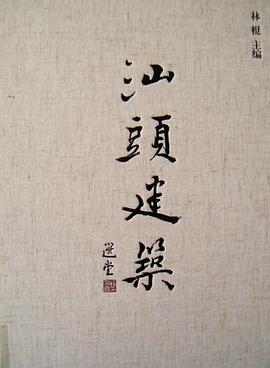 林梃 主编
汕頭建築
選堂